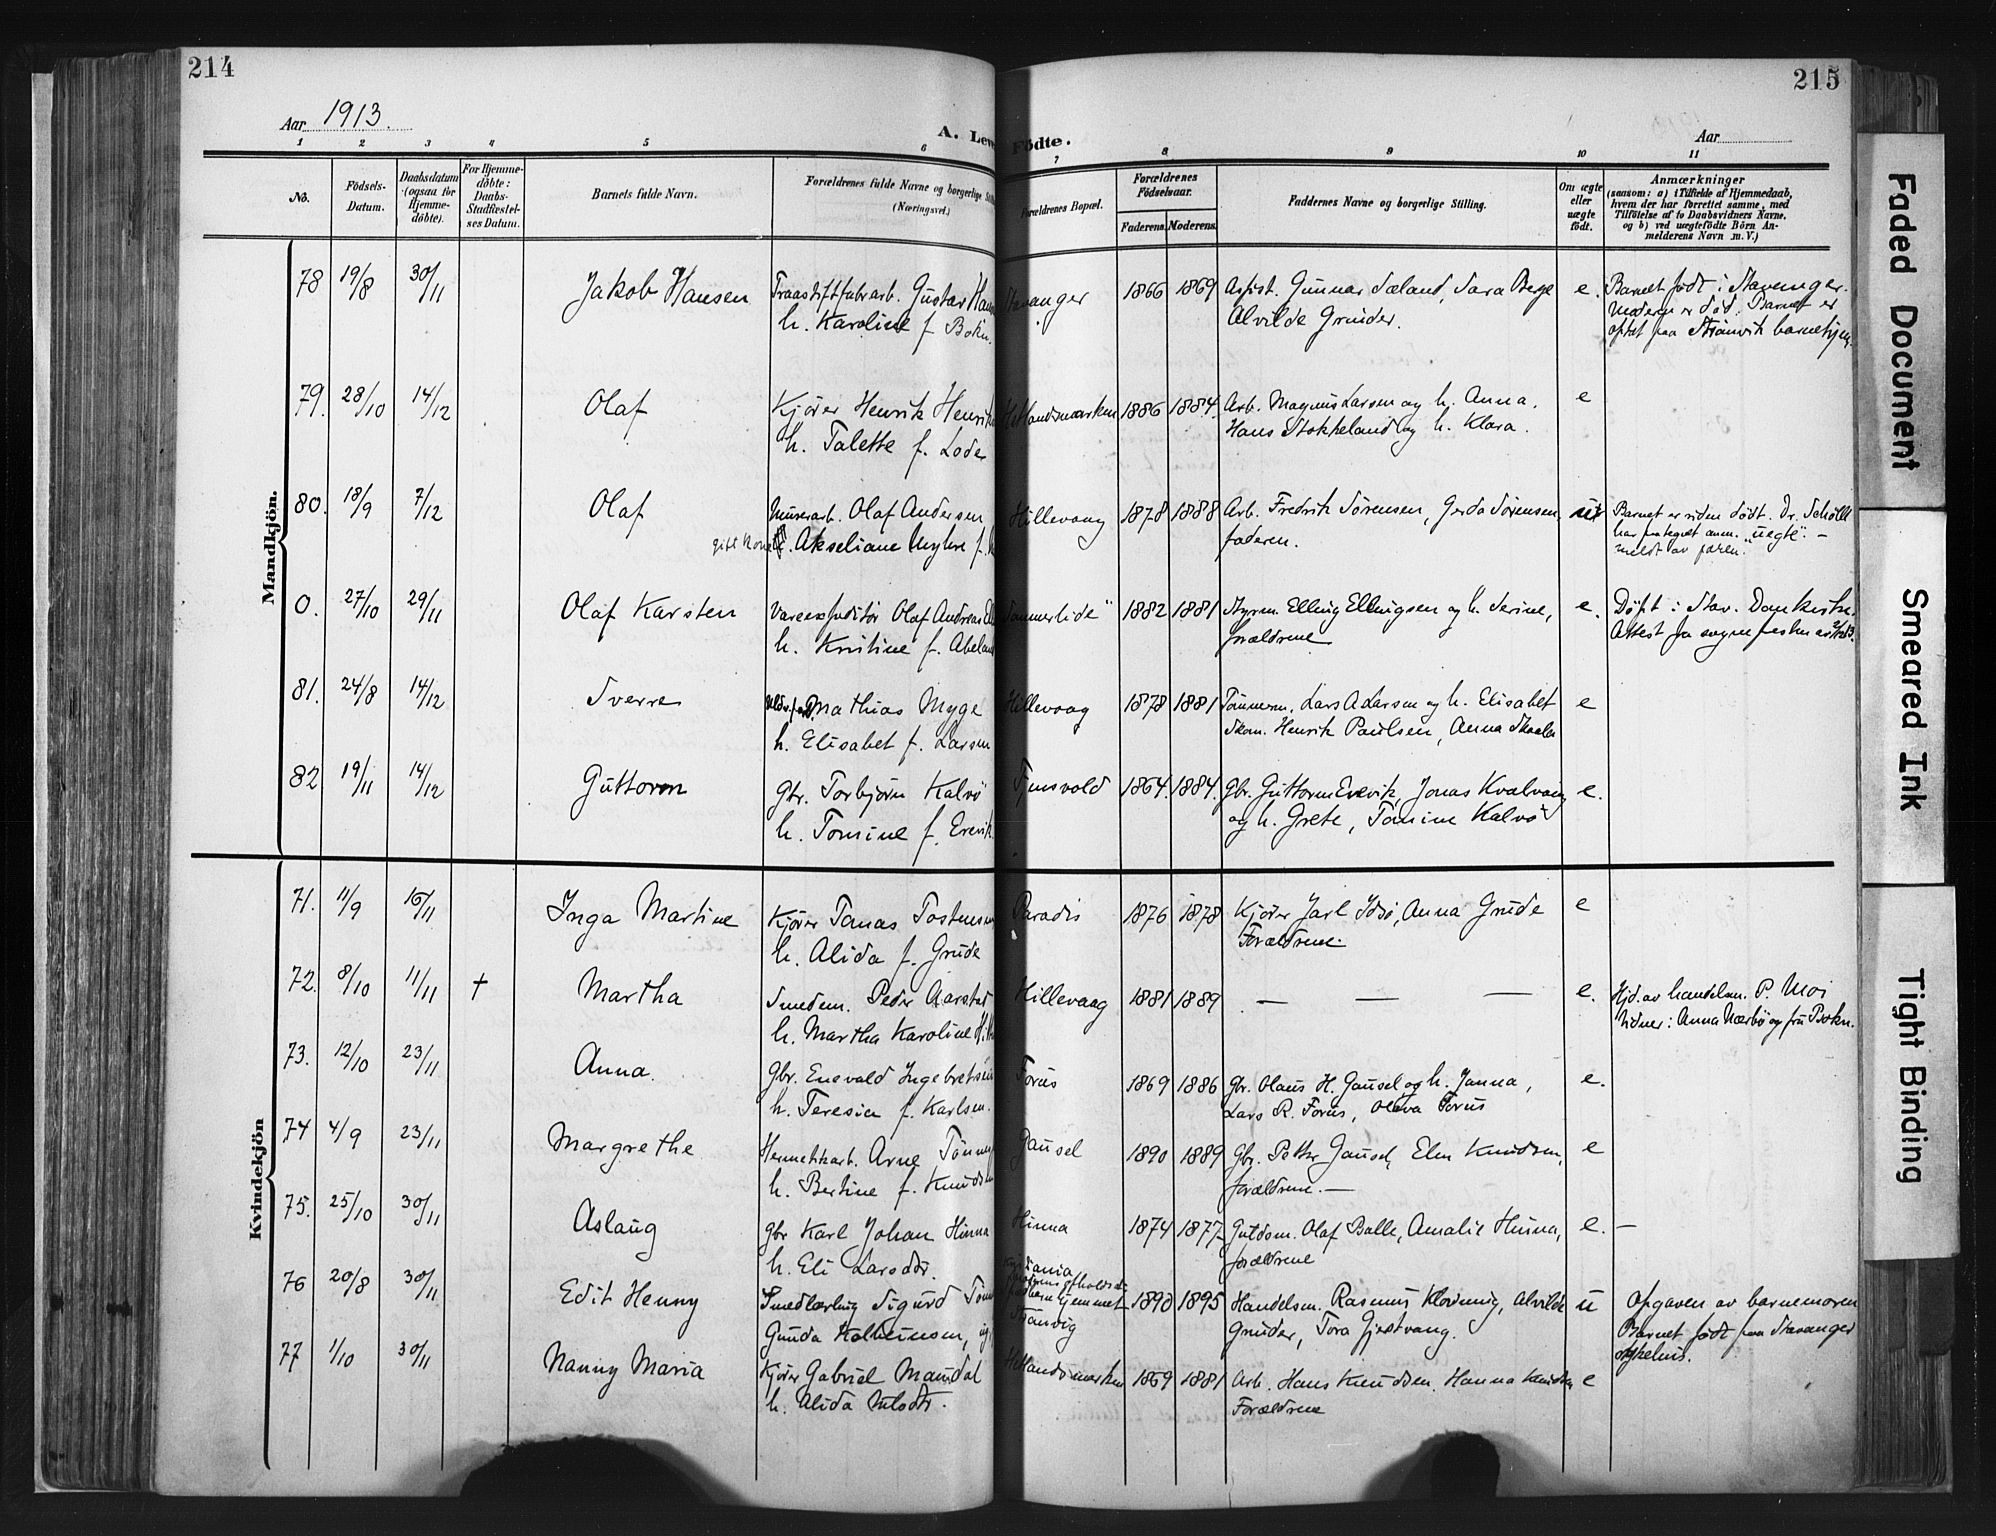 214
215
Aar 1913.
A. Leve Födte.
Aar
1 2 3 4 5 6 7 8 9 10 11
No.
Födsels-Datum.
Daabsdatum (ogsaa for Hjemme-döbte).
For Hjemme-döbte: Daabs-Stadfæstel-ses Datum.
Barnets fulde Navn.
Forældrenes fulde Navne og borgerlige Stil (Næringsvei.)
Forældrenes Bopæl.
Forældrenes Födselsaar.
Faderens. Moderens.
Faddernes Navne og borgerlige Stilling.
Om ægte eller uægte födt.
Anmærkninger
(saasom: a) i Tilfælde af Hjemmedaab, hvem der har forrettet samme, med Tilföielse af to Daabsvidners Navne, og b) ved uægtefödte Börn An-melderens Navn m. V.)
Mandkjön.
78 19/8 30/11 Jakob Hansen Gustav Han Stavanger 1866 1869 Asfist. Gunnar Sæland, Sara Berge e. Barnet født i Stavanger.
h. Karoline f. Bokn. Alvilde Gruder. Moderen er død. Barnet er
optat paa Strømvik barnehjem.
79. 28/10 14/12 Olaf Kjører Henrik Henrik Hetlandsmarken 1886 1884. Arb. Magnus Larsen og h. Anna. e
h. Talette f. Loder Hans Stokkeland og h. Klara.
80. 18/9 7/12 Olaf Murerarb. Olaf Andersen Hillevaag 1878 1888 Arb. Fredrik Sørensen, Gerda Sørensen, Barnet er siden født. Dr.
gift kone Akseliane Myhre f. faderen. "uegte".
0. 27/10 29/11 Olaf Karsten Vareexpeditør Olaf Andreas Sommerlide" 1882 1881 Styrm. Elling Ellingsen og h. Serine, e. Døpt i Stav. Domkirke.
h. Kristine f. Abeland forældrene Attest fra sognepresten av
81. 24/8 14/12 Sverre Mathias Myge Hillevaag 1878 1881 Tømmerm. Lars A Larsen og h. Elisabet e
h. Elisabet f. Larsen Skom. Henrik Paulsen, Anna
82 19/11 14/12 Guttorm Gbr. Torbjørn Kalvø Tjensvold 1864. 1884. Gbr. Guttorm Erevik, Jonas Kvalvaag e.
h. Tomine f. Erevik og h. Grete, Tomine Kalvø
Kvindekjön
71. 11/9 16/11 Inga Martine Kjører Tomas Tostensen Paradis 1876 1878 Kjører Jarl Idsø, Anna Grude e
h. Alida f. Grude Forældrene.
72. 8/10 11/11 † Martha Smedem. Peder Aarstad Hillevaag 1881 1889 — — — e. Hjd. av handelsm. P. Moi
h. Martha Karoline Vidner: Anna Nærbø og fru Bokn.
73. 12/10 23/11 Anna. Gbr. Enevald Ingebretsen Forus 1869 1886 Gbr. Olaus H. Gausel og h. Janna, e.
h. Teresia f. Karlsen. Lars R. Forus, Oleva Forus
74 4/9 23/11 Margrethe Hermetikarb. Arne Tønnes Gausel 1890 1889 Gbr. Petter Gausel, Elen Knudsen, e
h. Bertine f. Knudsen forældrene. —
75. 25/10 30/11 Aslaug Gbr Karl Johan Hinna Hinna 1874 1877 Guldsm. Olaf Balle, Amalie Hinna, e. —
h. Eli Larsdtr. forældrene
76 20/8 30/11 Edit Henny Smedlærling Sigurd Kristiania 1890 1895 Handelsm. Rasmus Alvilde u Opgaven av barnemoren
Gunda Kolbeinsen, Strømvig Gruder, Tora Gjestvang. Barnet født paa Stavanger
sykehus.
77 1/10 30/11 Nanny Maria Kjører Gabriel Maudal Hetlandsmarken 1869 1881 Arb. Hans Knudsen. Hanna Knudsen e
h. Alida Nilsdtr. Forældrene
Faded Document
Smeared Ink
Tight Binding